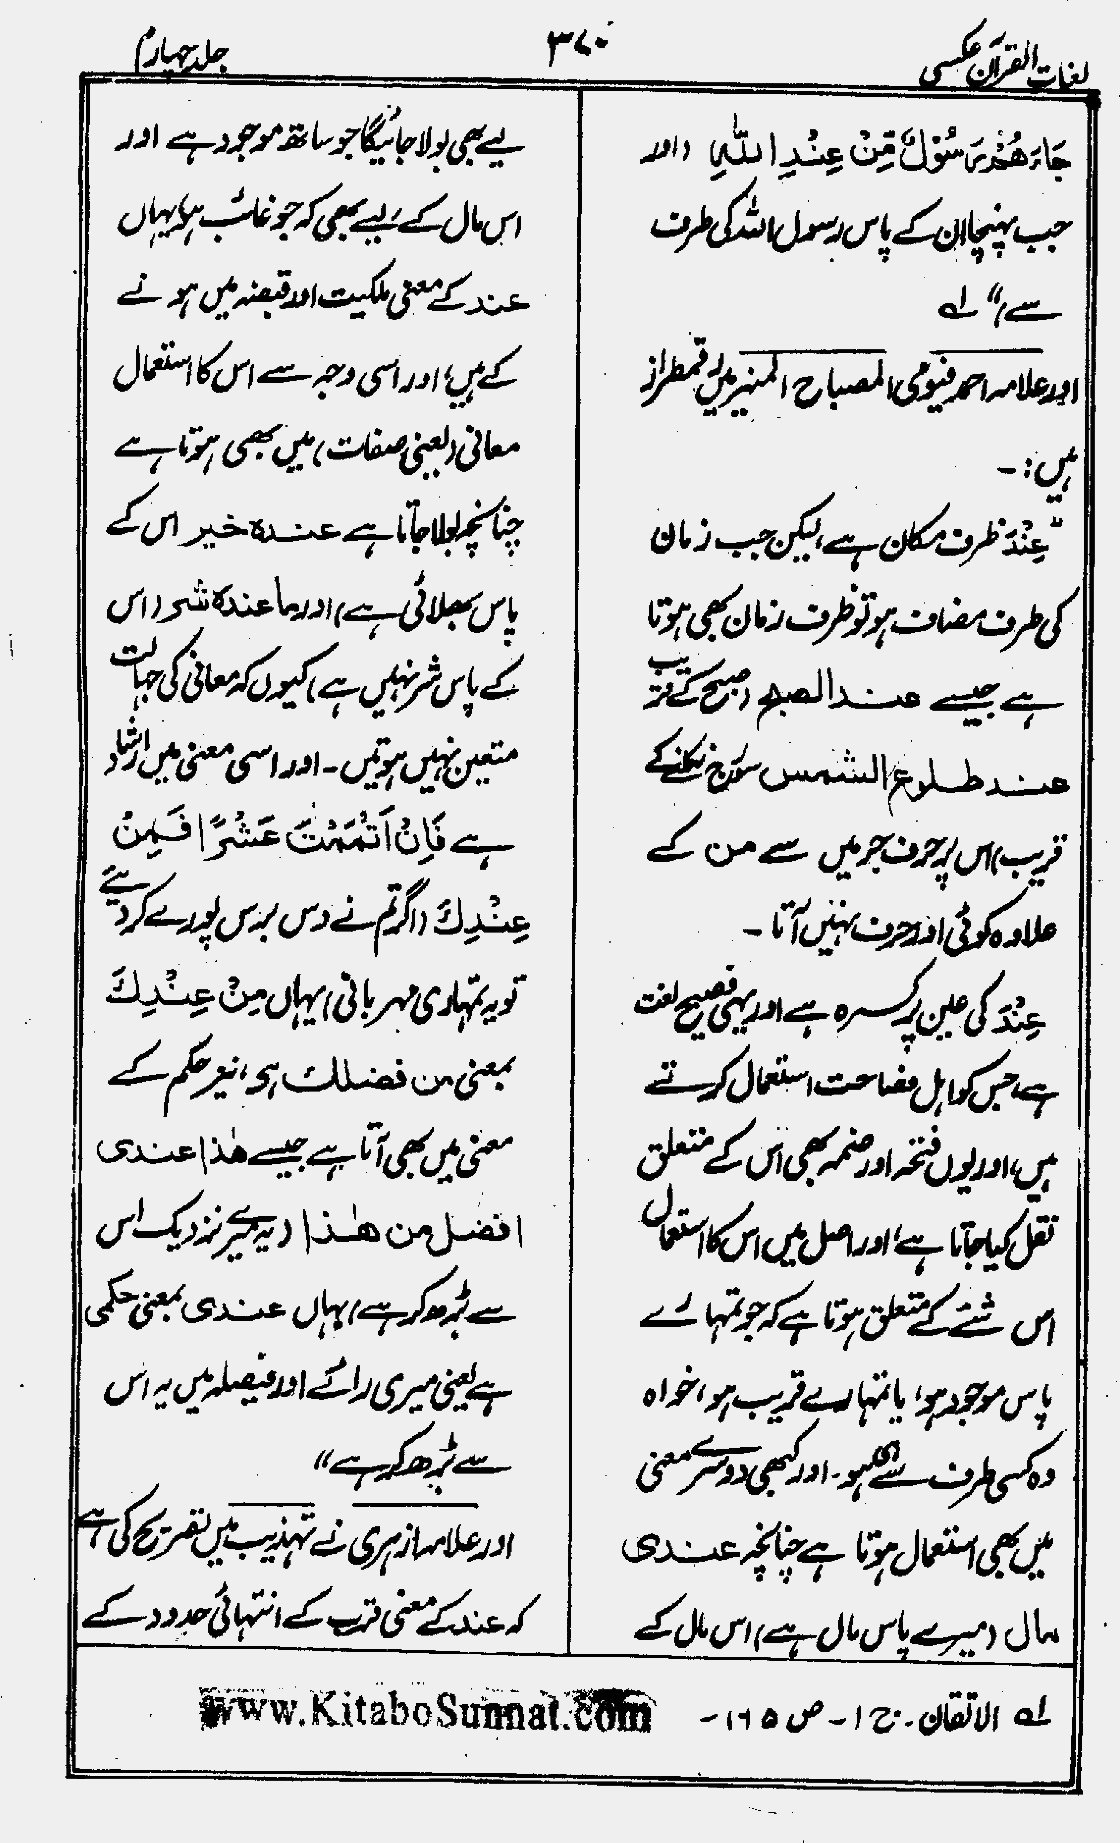 لغات القرآن عکسی
۳۷۰
جلد چہارم
جَاءَهُمْ رَسُوْلٌ مِّنْ عِنْدِ اللّٰهِ (اور
جب پہنچا ان کے پاس رسول اللہ کی طرف
سے)" لہ
اور علامہ احمد فیومی المصباح المنیر میں رقمطراز
ہیں :-
"عِنْدَ ظرف مکان ہے، لیکن جب زمان
کی طرف مضاف ہو تو ظرف زمان بھی ہوتا
ہے جیسے عند الصبح (صبح کے قریب
عند طلوع الشمس سورج نکلنے کے
قریب) اس پر حرف جر میں سے من کے
علاوہ کوئی اور حرف نہیں آتا -
عِنْدَ کی عین پر کسرہ ہے اور یہی فصیح لغت
ہے جس کو اہل فصاحت استعمال کرتے
ہیں، اور یوں فتحہ اور ضمہ بھی اس کے متعلق
نقل کیا جاتا ہے، اور اصل میں اس کا استعمال
اس شئے کے متعلق ہوتا ہے کہ جو تمہارے
پاس موجود ہو، یا تمہارے قریب ہو، خواہ
وہ کسی طرف سے بھی ہو۔ اور کبھی دوسرے معنی
میں بھی استعمال ہوتا ہے چنانچہ عندی
مال (میرے پاس مال ہے) اس مال کے
لیے بھی بولا جائیگا جو ساتھ موجود ہے اور
اس مال کے لیے بھی کہ جو غائب ہو، یہاں
عند کے معنی ملکیت اور قبضہ میں ہونے
کے ہیں، اور اسی وجہ سے اس کا استعمال
معانی (یعنی صفات) میں بھی ہوتا ہے
چنانچہ بولا جاتا ہے عندہ خیر اس کے
پاس بھلائی ہے) اور ما عندہ شر (اس
کے پاس شر نہیں ہے) کیوں کہ معانی کی جہات
متعین نہیں ہوتیں - اور اسی معنی میں ارشاد
ہے فَاِنْ اَتْمَمْتَ عَشْرًا فَمِنْ
عِنْدِكَ (اگر تم نے دس برس پورے کر دیئے
تو یہ تمہاری مہربانی) یہاں مِنْ عِنْدِكَ
بمعنی من فضلك ہی، نیز حکم کے
معنی میں بھی آتا ہے جیسے هٰذا عندی
افضل من هٰذا (یہ میرے نزدیک اس
سے بڑھ کر ہے) یہاں عندی بمعنی حکمی
ہے یعنی میری رائے اور فیصلہ میں یہ اس
سے بڑھ کر ہے"
اور علامہ ازہری نے تہذیب میں تصریح کی ہے
کہ عند کے معنی قرب کے انتہائی حدود کے
لہ الاتقان - ج ۱ - ص ۱۶۵ -
www.KitaboSunnat.com